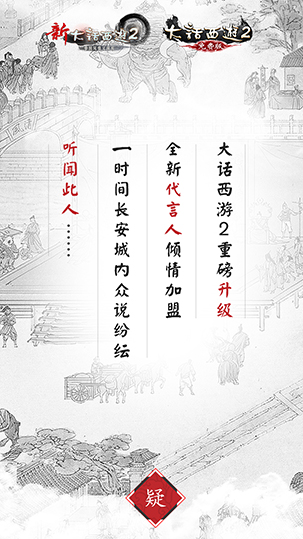 新大话西游2
大话西游2
免费版
大话西游2重磅升级
全新代言人倾情加盟
一时间长安城内众说纷纭
听闻此人……
疑